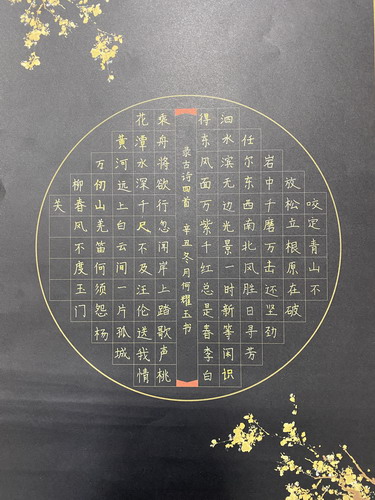 咬定青山不
放松立根原在破
岩中千磨万击还坚劲
任尔东西南北风胜日寻芳
泗水滨无边光景一时新等闲识
得东风面万紫千红总是春李白
录古诗四首 辛丑冬月何耀玉书
乘舟将欲行忽闻岸上踏歌声桃
花潭水深千尺不及汪伦送我情
黄河远上白云间一片孤城
万仞山羌笛何须怨杨
柳春风不度玉门
关